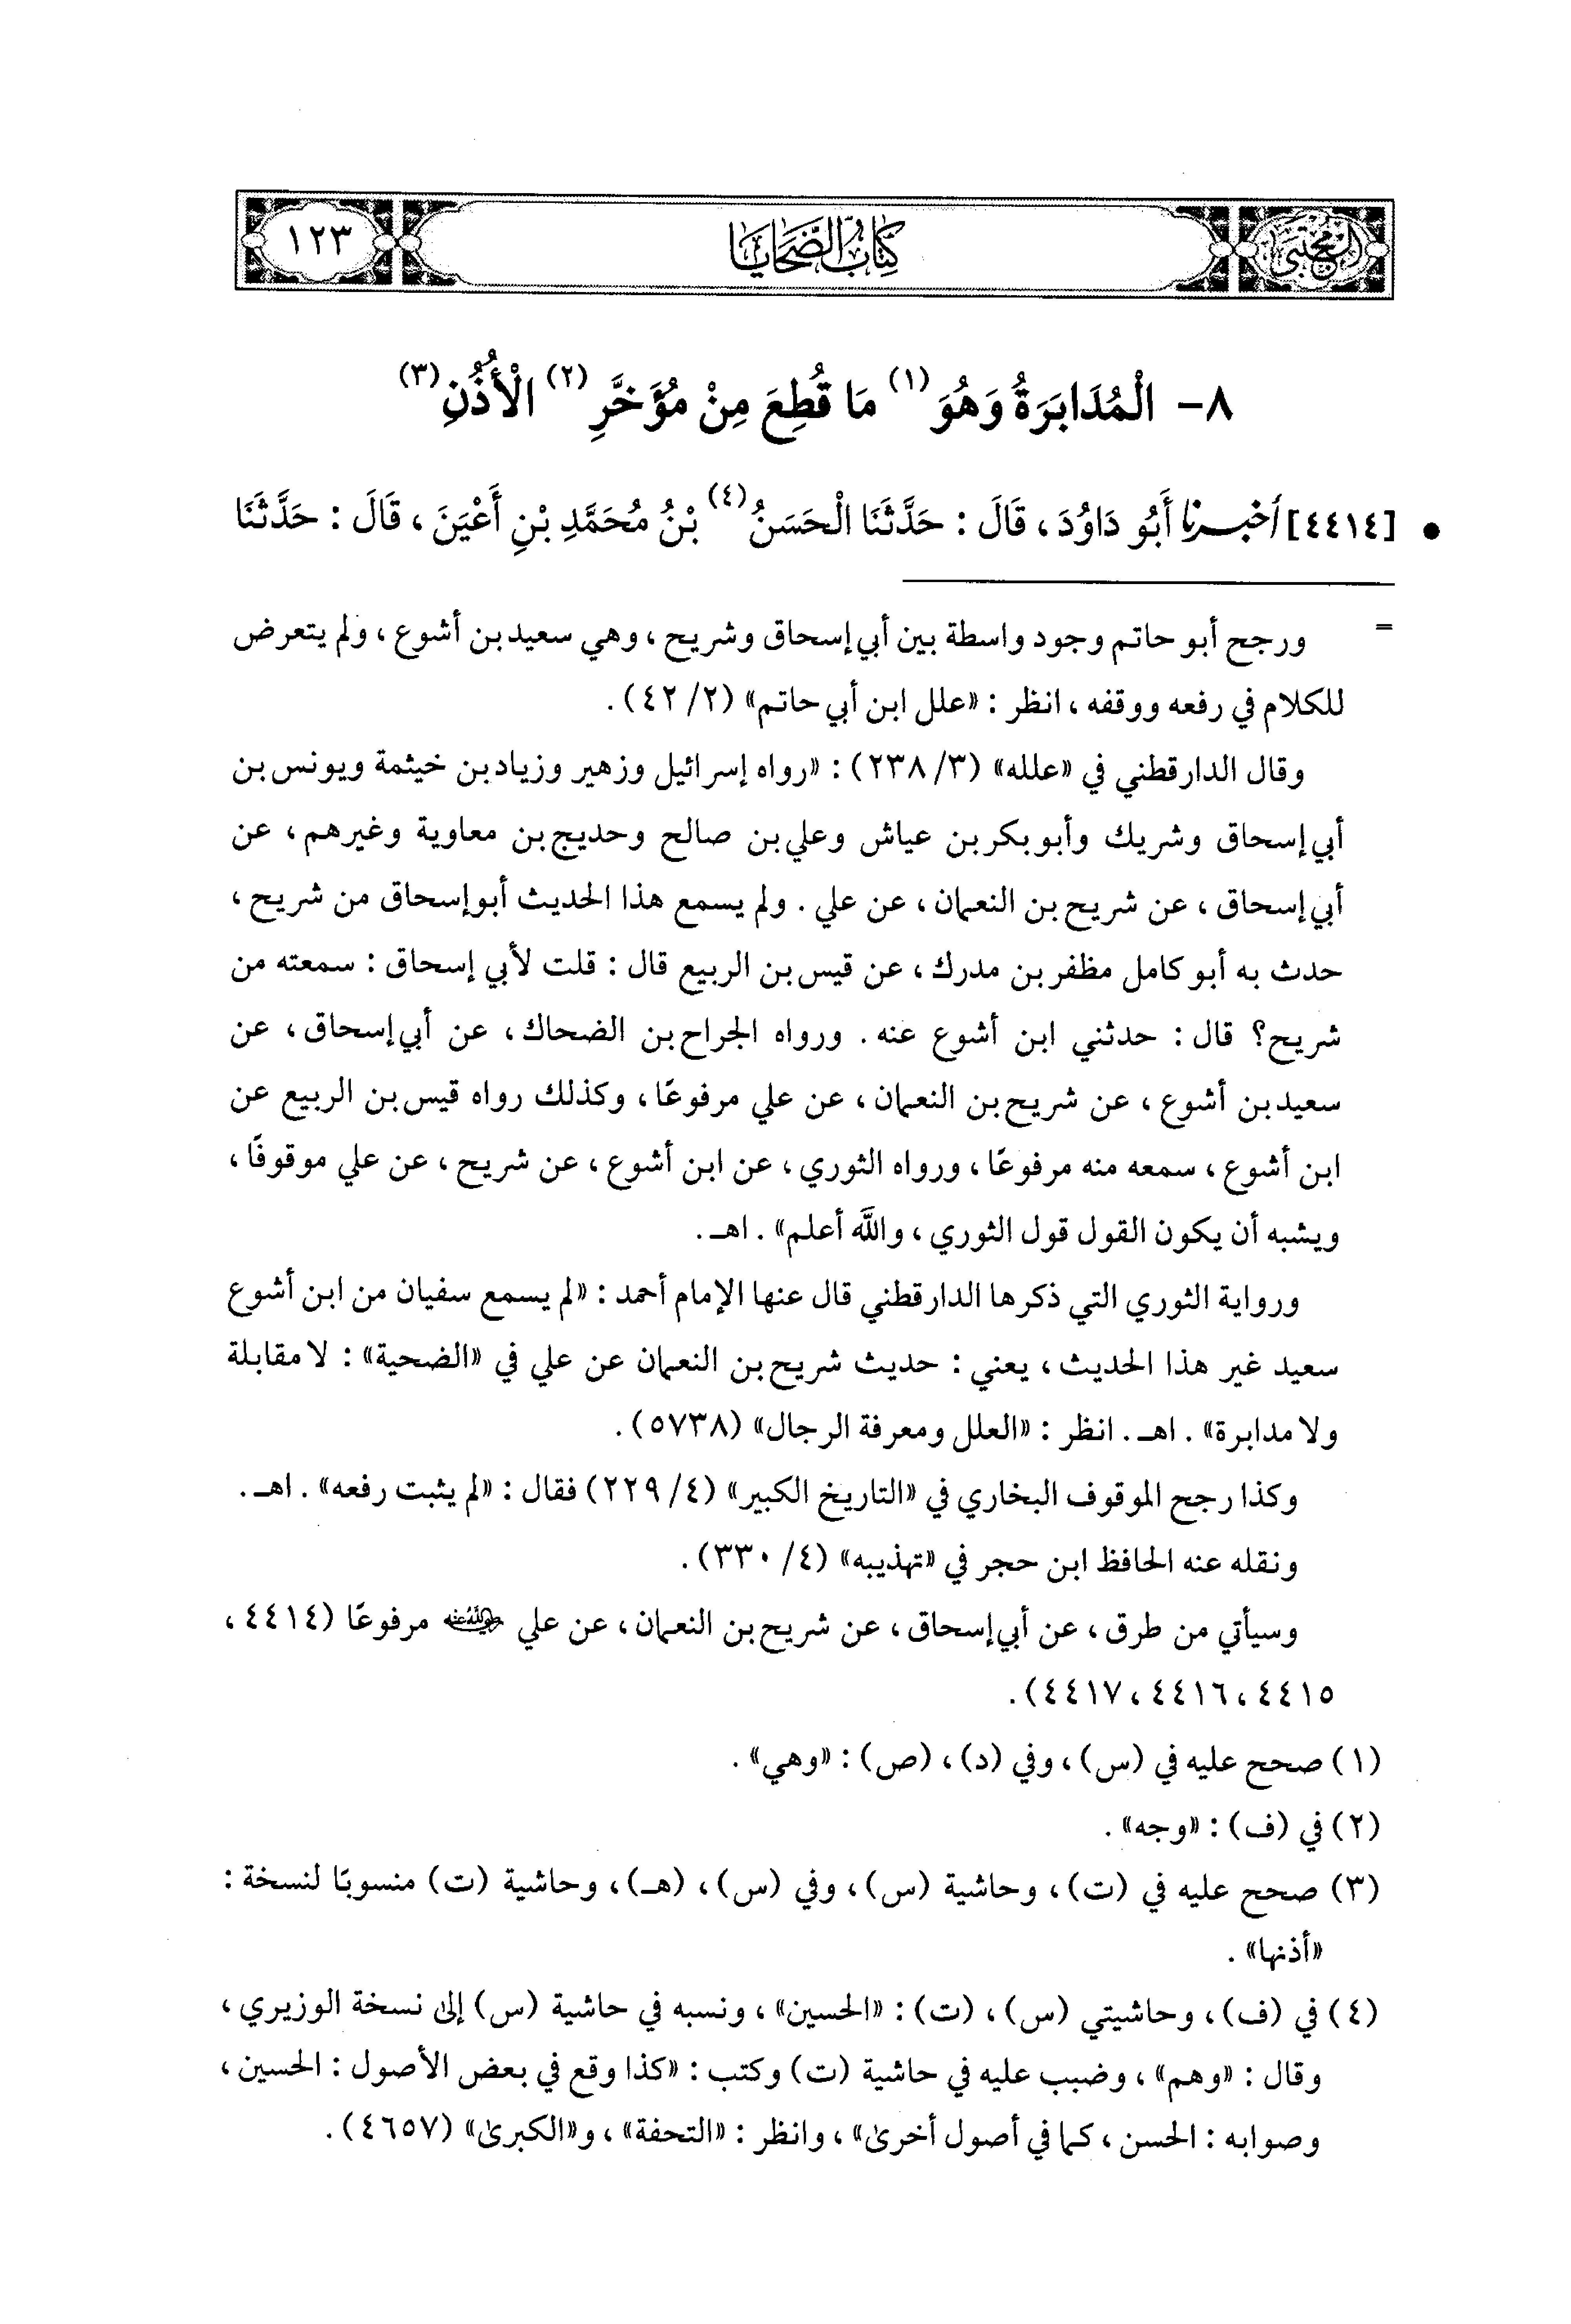 المجتبى
كتاب الضحايا
١٢٣
٨- الْمُدَابَرَةُ وَهُوَ (١) مَا قُطِعَ مِنْ مُؤَخَّرِ (٢) الْأُذُنِ (٣)
• [٤٤١٤] أخبرنا أَبُو دَاوُدَ، قَالَ: حَدَّثَنَا الْحَسَنُ (٤) بْنُ مُحَمَّدِ بْنِ أَعْيَنَ، قَالَ: حَدَّثَنَا
= ورجح أبو حاتم وجود واسطة بين أبي إسحاق وشريح، وهي سعيد بن أشوع، ولم يتعرض
للكلام في رفعه ووقفه، انظر: «علل ابن أبي حاتم» (٢/ ٤٢).
وقال الدارقطني في «علله» (٣/ ٢٣٨): «رواه إسرائيل وزهير وزياد بن خيثمة ويونس بن
أبي إسحاق وشريك وأبو بكر بن عياش وعلي بن صالح وحديج بن معاوية وغيرهم، عن
أبي إسحاق، عن شريح بن النعمان، عن علي. ولم يسمع هذا الحديث أبو إسحاق من شريح،
حدث به أبو كامل مظفر بن مدرك، عن قيس بن الربيع قال: قلت لأبي إسحاق: سمعته من
شريح؟ قال: حدثني ابن أشوع عنه. ورواه الجراح بن الضحاك، عن أبي إسحاق، عن
سعيد بن أشوع، عن شريح بن النعمان، عن علي مرفوعًا، وكذلك رواه قيس بن الربيع عن
ابن أشوع، سمعه منه مرفوعًا، ورواه الثوري، عن ابن أشوع، عن شريح، عن علي موقوفًا،
ويشبه أن يكون القول قول الثوري، واللَّه أعلم». اهـ.
ورواية الثوري التي ذكرها الدارقطني قال عنها الإمام أحمد: «لم يسمع سفيان من ابن أشوع
سعيد غير هذا الحديث، يعني: حديث شريح بن النعمان عن علي في «الضحية»: لا مقابلة
ولا مدابرة». اهـ. انظر: «العلل ومعرفة الرجال» (٥٧٣٨).
وكذا رجح الموقوف البخاري في «التاريخ الكبير» (٤/ ٢٢٩) فقال: «لم يثبت رفعه». اهـ.
ونقله عنه الحافظ ابن حجر في «تهذيبه» (٤/ ٣٣٠).
وسيأتي من طرق، عن أبي إسحاق، عن شريح بن النعمان، عن علي رضي الله عنه مرفوعًا (٤٤١٤،
٤٤١٥، ٤٤١٦، ٤٤١٧).
(١) صحح عليه في (س)، وفي (د)، (ص): «وهي».
(٢) في (ف): «وجه».
(٣) صحح عليه في (ت)، وحاشية (س)، وفي (س)، (هـ)، وحاشية (ت) منسوبًا لنسخة:
«أذنها».
(٤) في (ف)، وحاشيتي (س)، (ت): «الحسين»، ونسبه في حاشية (س) إلى نسخة الوزيري،
وقال: «وهم»، وضبب عليه في حاشية (ت) وكتب: «كذا وقع في بعض الأصول: الحسين،
وصوابه: الحسن، كما في أصول أخرىٰ»، وانظر: «التحفة»، و«الكبرىٰ» (٤٦٥٧).